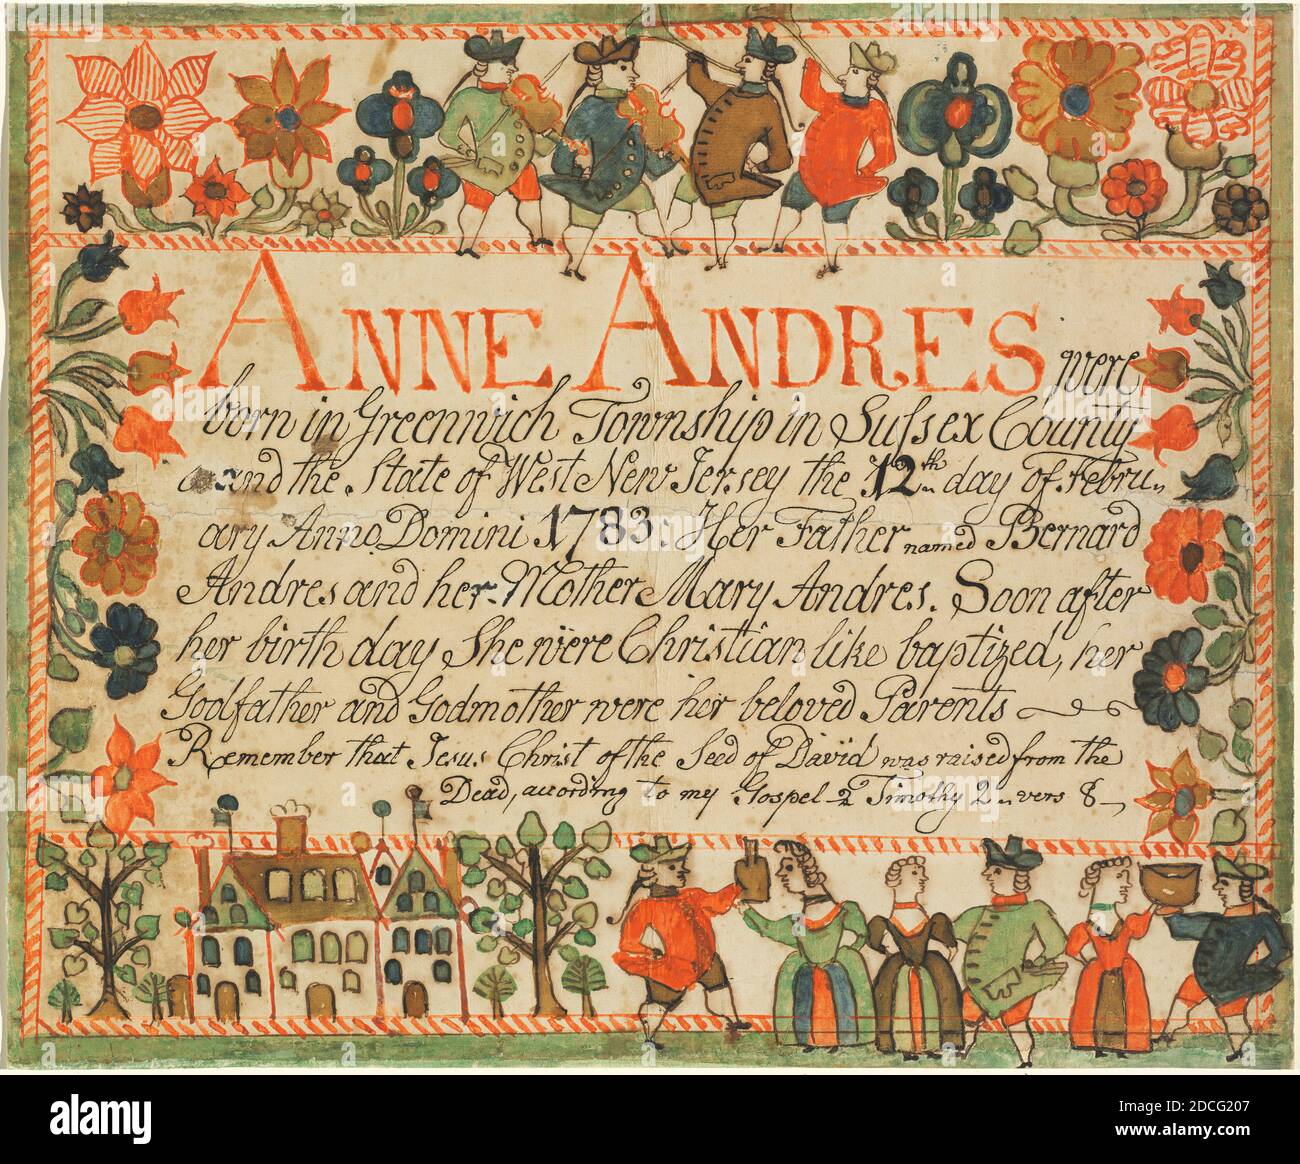 ANNE ANDRES were
born in Greenwich Township in Sussex County
and the State of West New Jersey the 12th day of Febru=
ary Anno Domini 1783. Her Father named Bernard
Andres and her Mother Mary Andres. Soon after
her birth day She were Christian like baptized, her
Godfather and Godmother were her beloved Parents
Remember that Jesus Christ of the Seed of David was raised from the
Dead, according to my Gospel 2 Timothy 2 vers 8
alamy
Image ID: 2DCG207
www.alamy.com